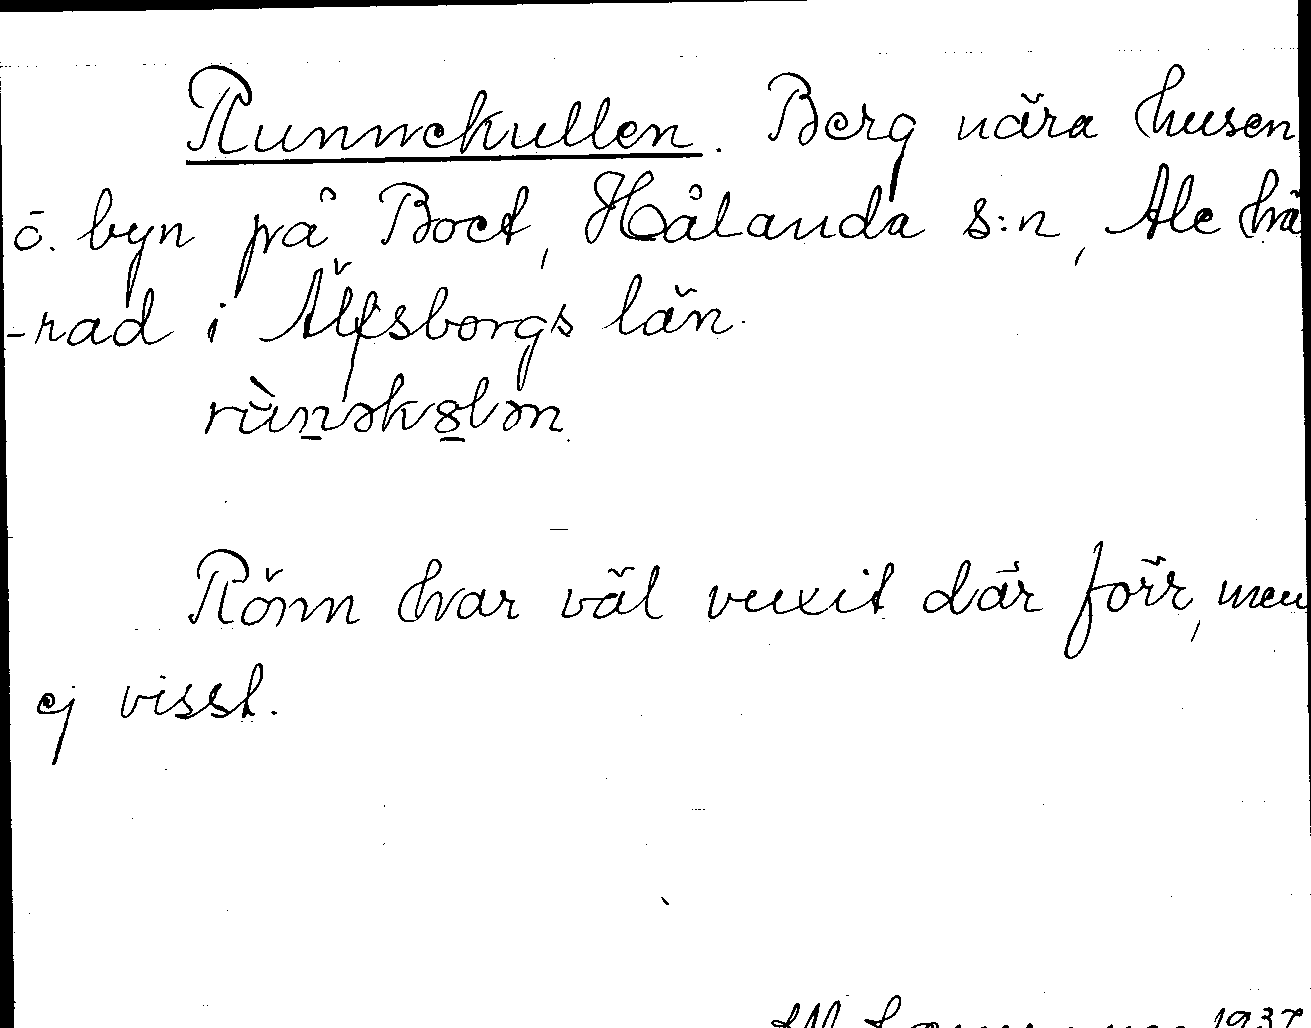 Runnekullen. Berg nära husen
ö. byn på Boet, Hålanda s:n, Ale hä
-rad i Älfsborgs län.
rùnəkȣlən
Rönn har väl vuxit där förr, men
ej visst.
1937